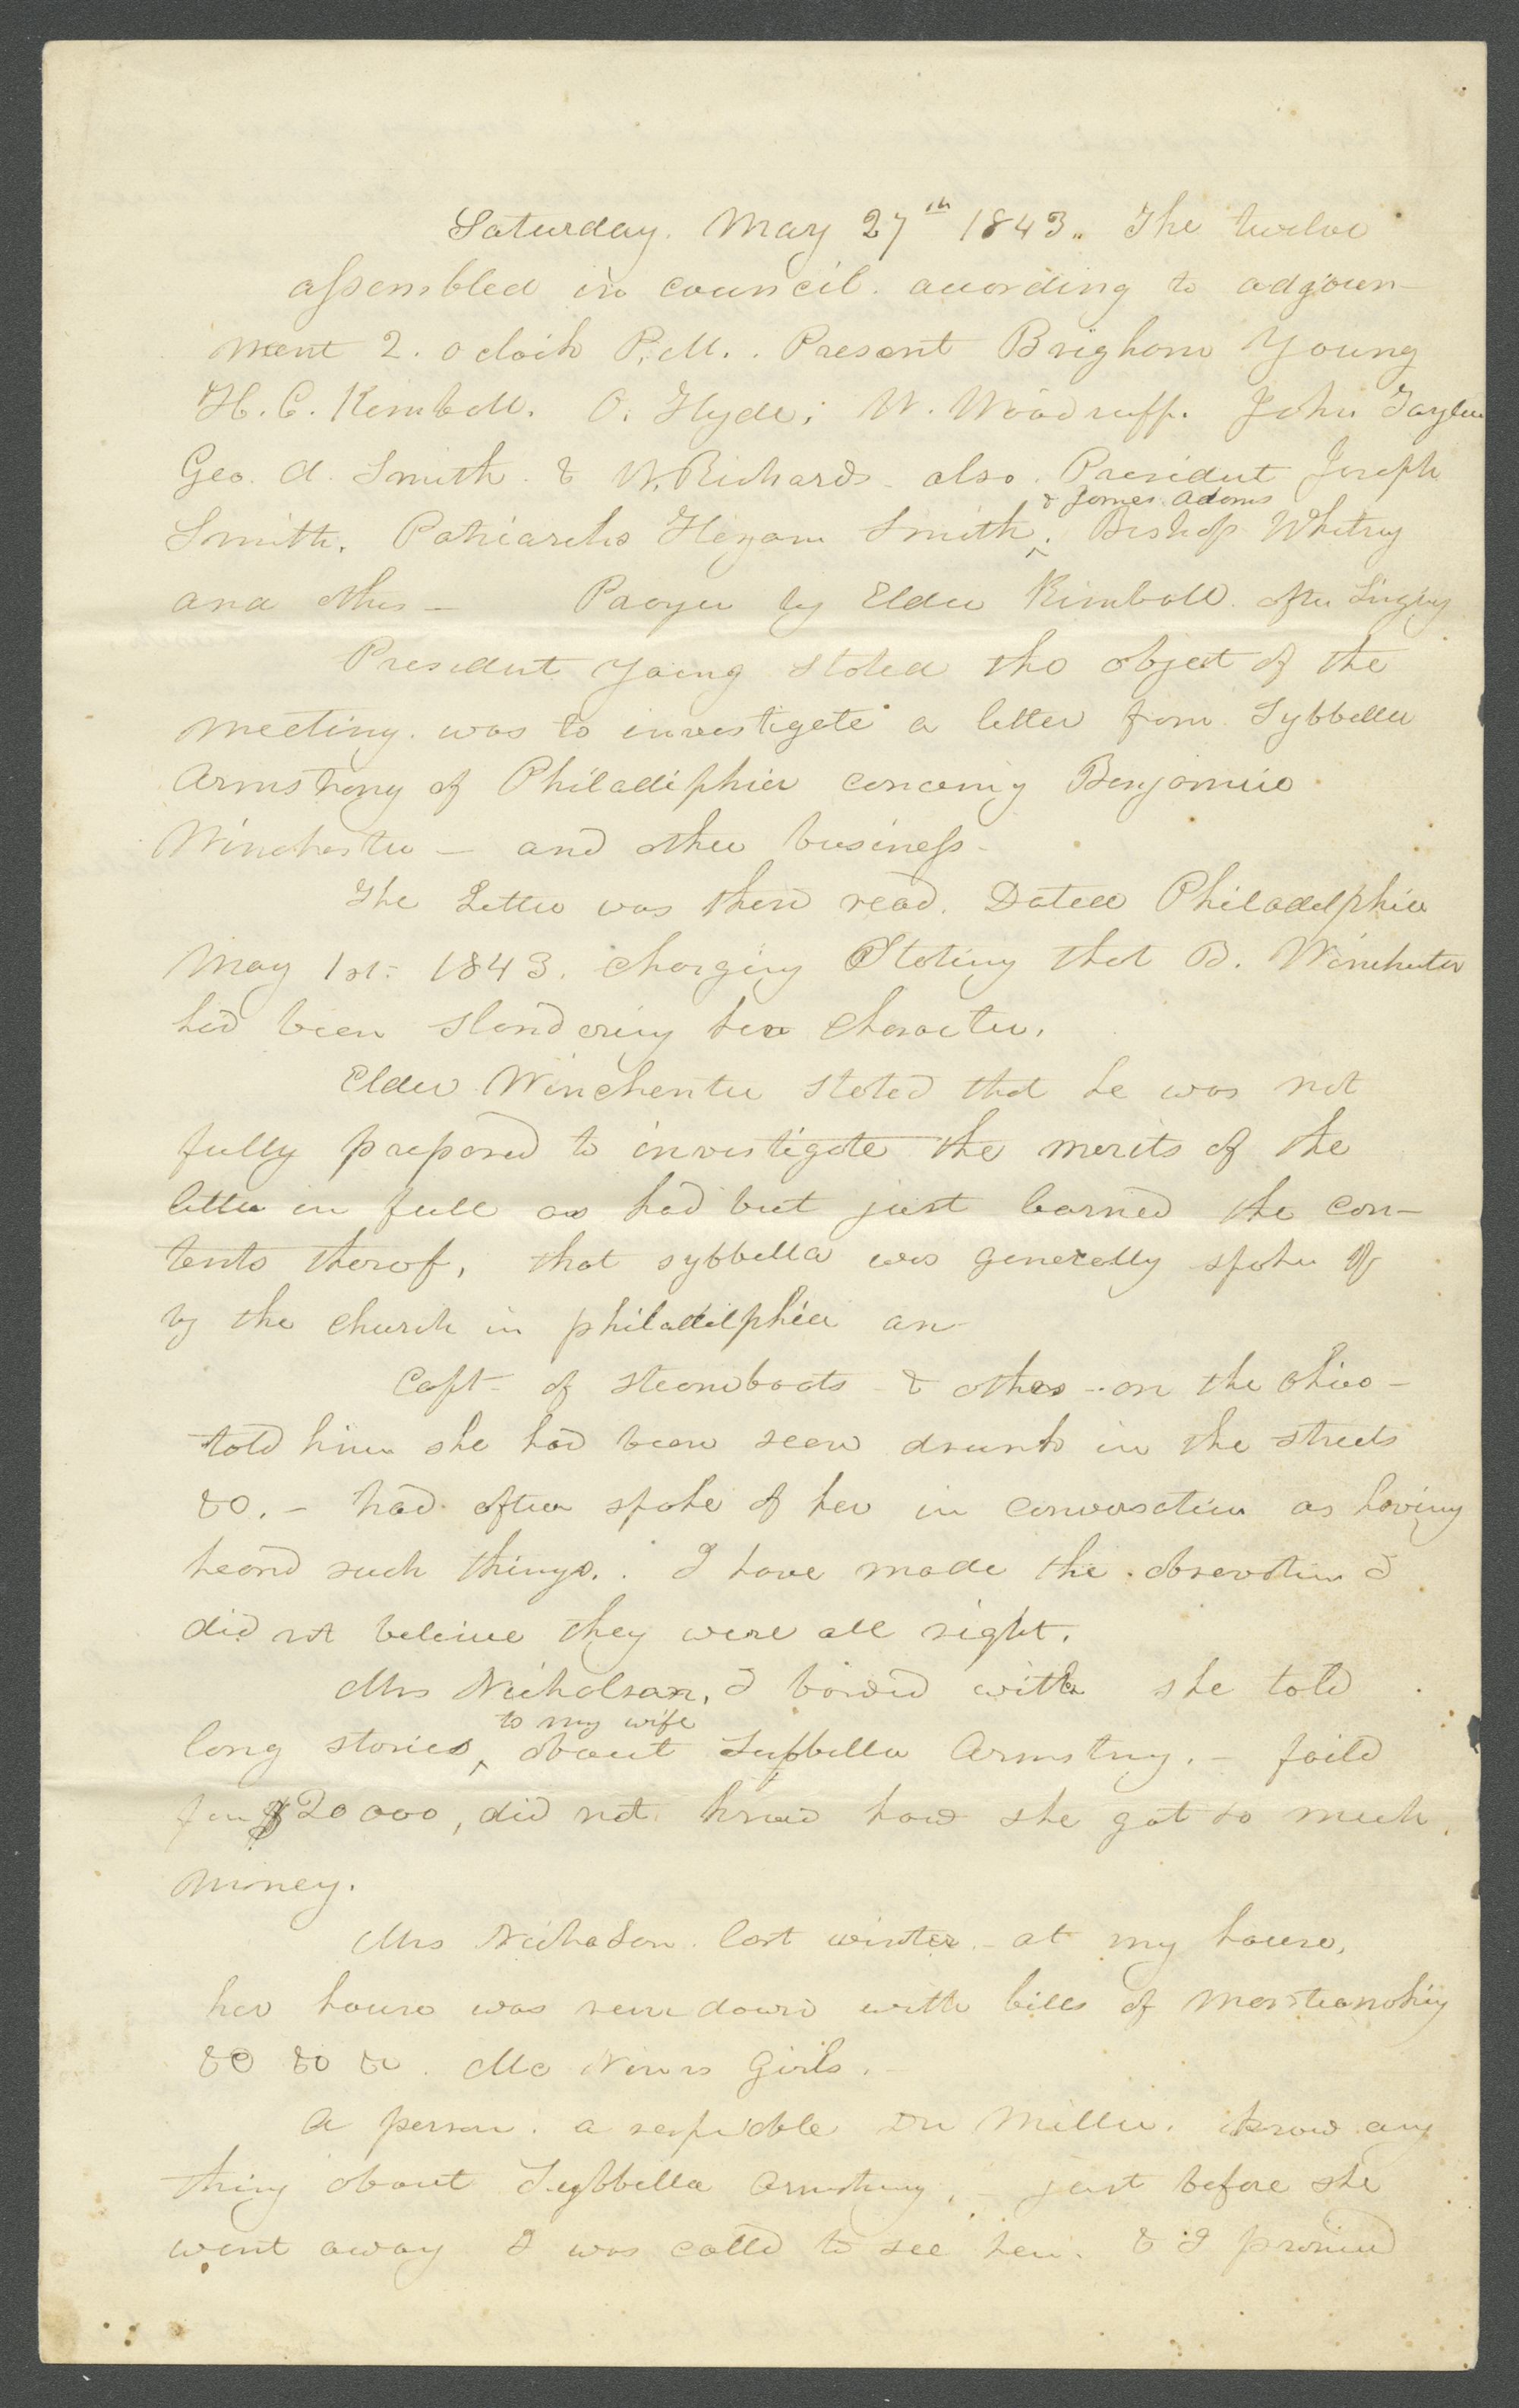 Saturday. May 27th 1843. The twelve
assembled in council. according to adjourn-
ment 2. oclock P.M. . Present Brigham Young
H. C. Kimball. O. Hyde, W. Woodruff. John Taylor
Geo. A. Smith. & W. Richards. also. President Joseph
& James Adams
Smith. Patriarchs Hyram Smith ^. Bishop Whitney
and others — Prayer by Elder Kimball. after Singing
President Young stated the object of the
meeting. was to investigate a letter from Sybbella
Armstrong of Philadelphia concerning Benjamin
Winchester — and other business-
The Letter was then read. Dated Philadelphia
May 1st. 1843. charging Stating that B. Winchester
had been slandering her character.
Elder Winchester stated that he was not
fully prepared to investigate the merits of the
letter in full as had but just learned the con-
tents therof, that sybbella was generally spoken of
by the church in philadelphia an
Capt- of steamboats - & others - on the Ohio -
told him she had been seen drunk in the streets
&c. - had often spoke of her in conversation as having
heard such things. . I have made the observation I
did not beleive they were all right.
Mrs Nicholson, I boarded with she told
to my wife
long stories ^ about Sybbella Armstrong. - faild
for $20000, did not know how she got so much
money.
Mrs Nicholson. last winter - at my house,
her house was run down with bills of
&c &c &c. Mc girls.
A person. a respectable Dr Miller. know any
thing about Sybbella Armstrong, - just before she
went away I was calld to see her. & I